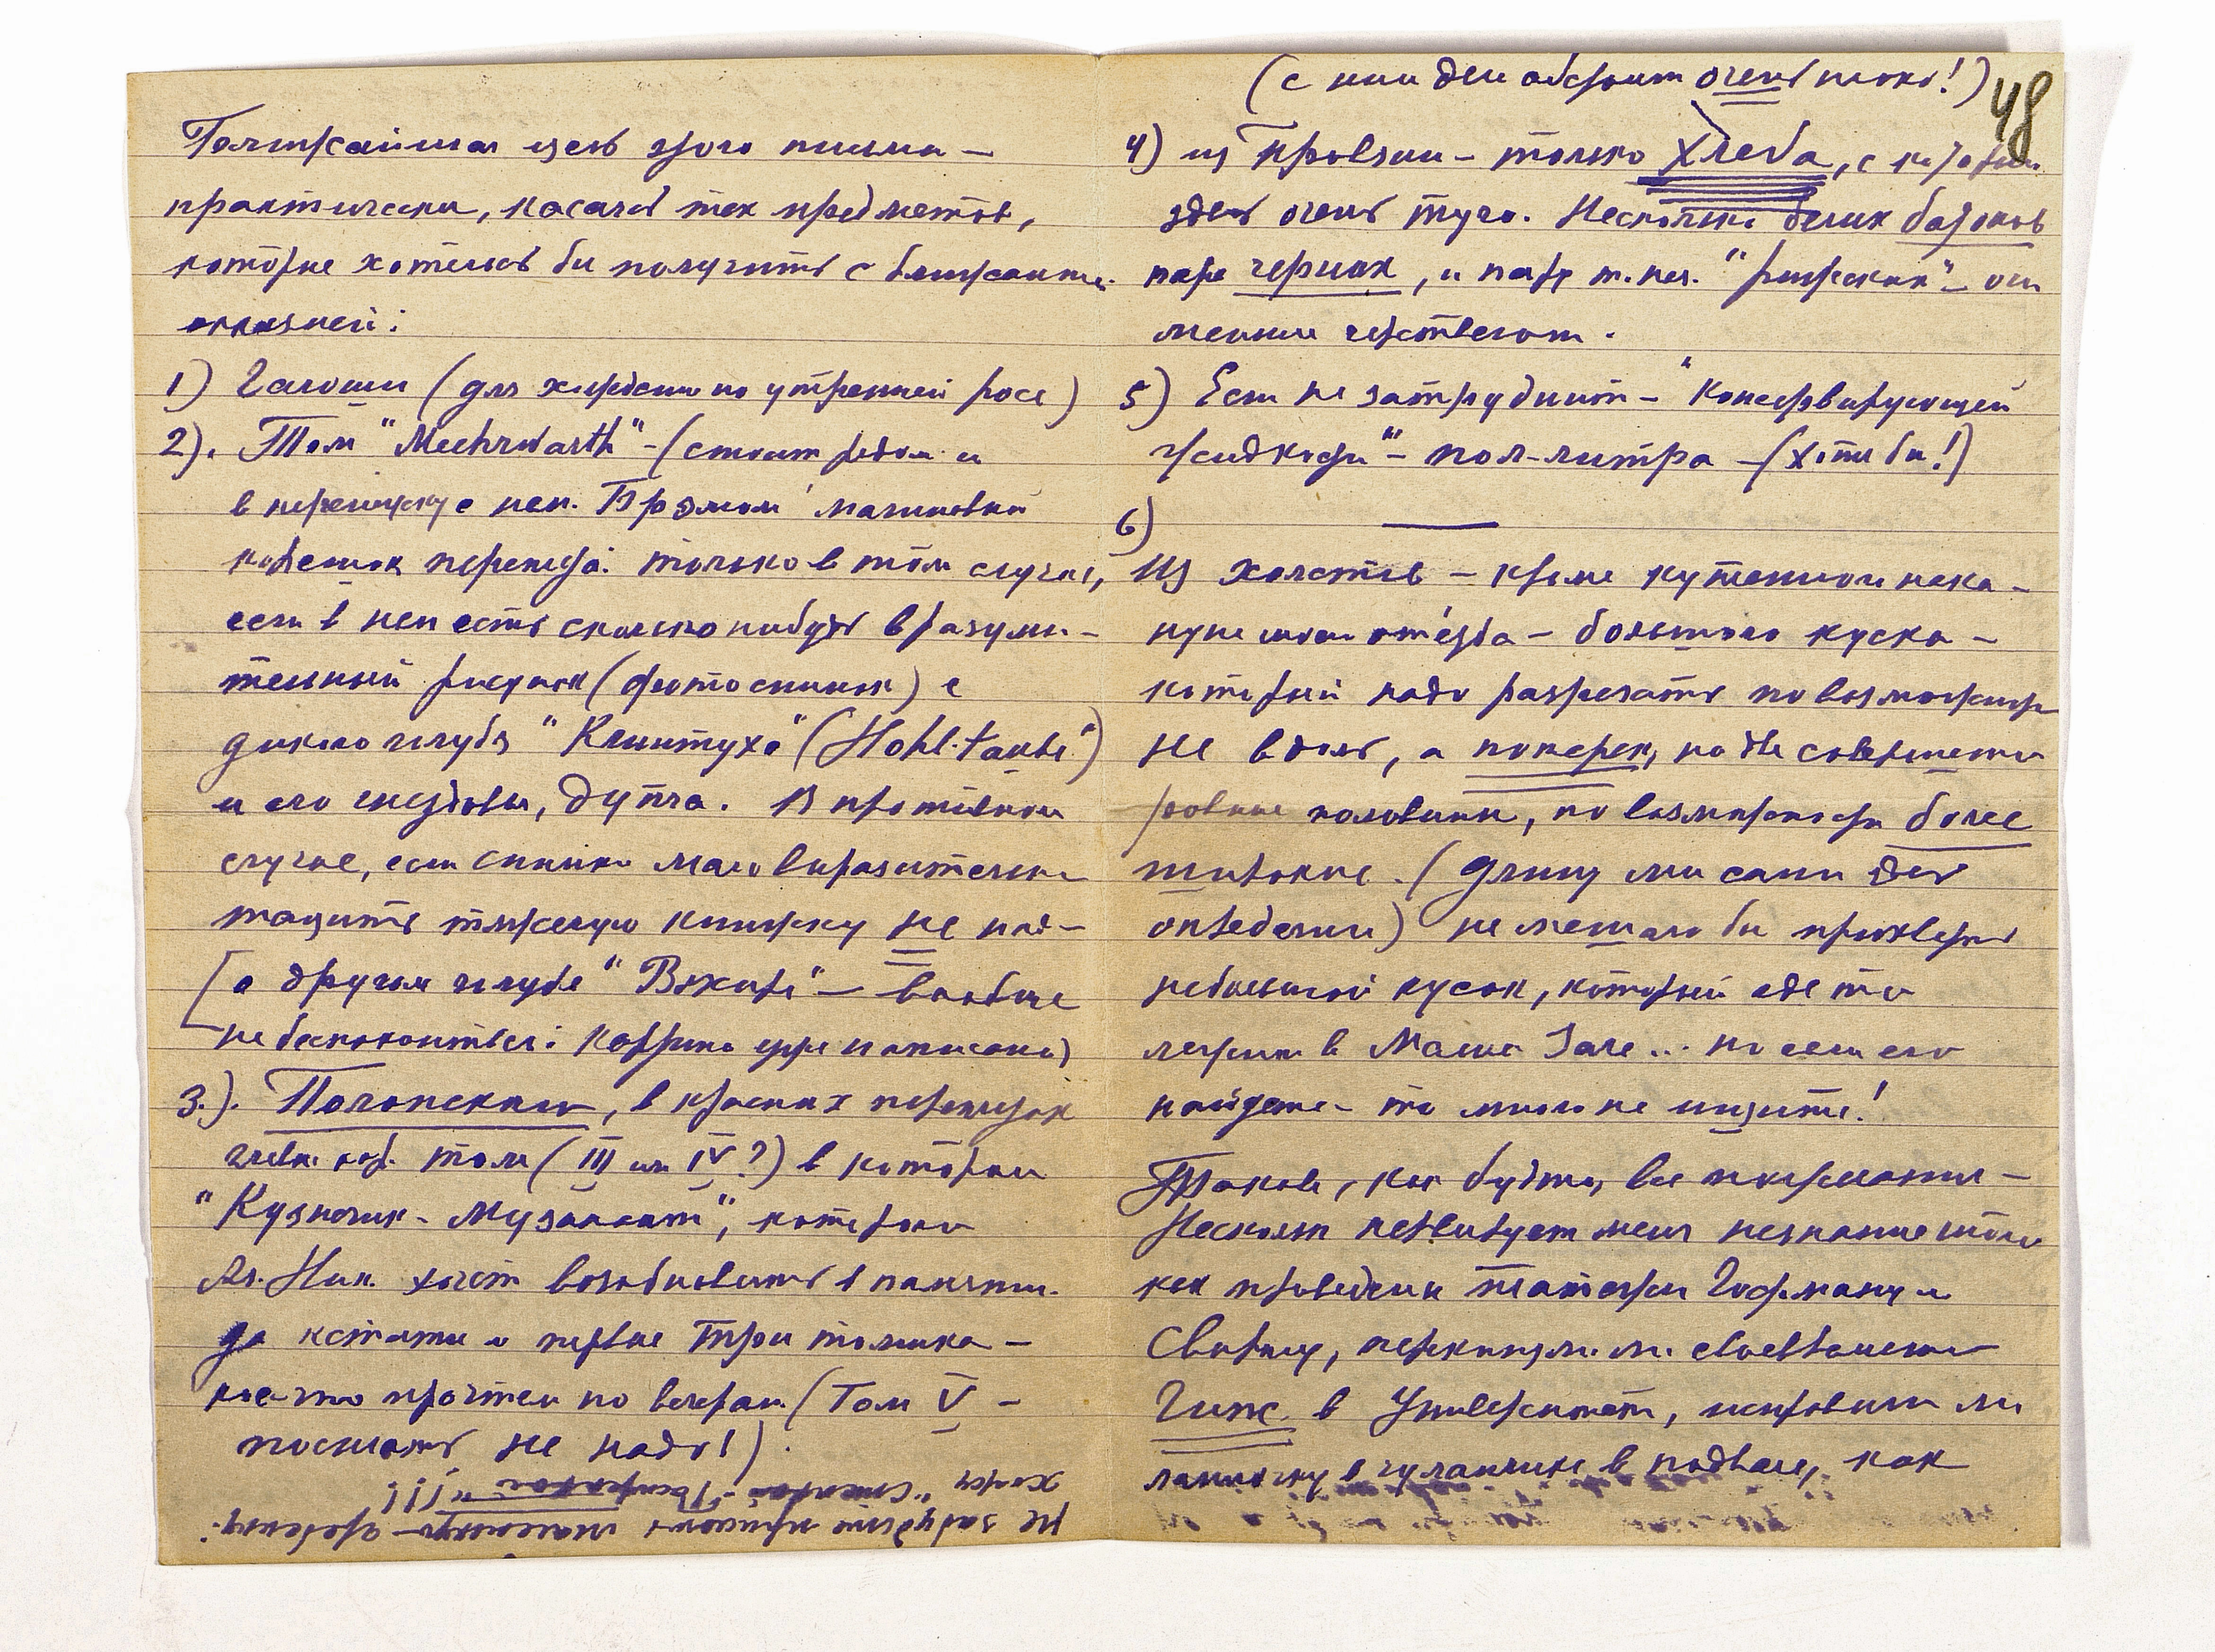 Ближайшая цель этого письма —
практическая, касаясь тех предметов,
которые хотелось бы получить с ближайшей
оказией:
1) Галоши (для хождения по утренней росе)
2). Том "Meerwarth" - (стоит рядом и
в переписку с нем. Брэмом малиновый
корешок переплёта: только в том случае,
если в нем есть сколько нибудь вразуми-
тельный рисунок (фотоснимок) с
дикого голубя "Клинтуха" (Hohl-taube)
и его гнездовья, дупла. В противном
случае, если снимки мало выразительны
тащить тяжелую книжку не надо
[о другом голубе "Вяхире" — вообще
не беспокоитесь: Картина уже написана)
3.). Полонского, в красных переплетах
том (III или IV?) в котором
"Кузнечик - Музыкант", которого
Ал. Ник. хочет возобновить в памяти.
да кстати и первые три томика —
кое-что прочтем по вечерам (Том V —
посылать не надо!).
Не забудьте прислать
хотя
(с ним дело обстоит очень плохо!)
48
4) из Провизии - только Хлеба, с которым
здесь очень туго. Несколько белых батонов
пара черных, и пару т. наз. "рижских" — они
меньше черствеют.
5) Если не затруднит - "Консервирующей
жидкости" — пол-литра — (хотя бы!)
6) —
Из холстов — кроме купленного нака-
нуне моего отъезда — большого куска —
который надо разрезать по возможности
не вдоль, а поперек, на две совершенно
ровные половины, по возможности более
широкие. (длину мы сами здесь
определим) не мешало бы прихватить
небольшой кусок, который где то
лежит в Малом Зале... но если его
найдете - то много не ищите!
Таковы, как будто, все пожелания —
Несколько нервирует меня незнание того
как проведены платежи Гофману и
Свирину, перекинули ли своевременно
Гипс в Университет, исправили ли
лампочку в чуланчике в подвале, как